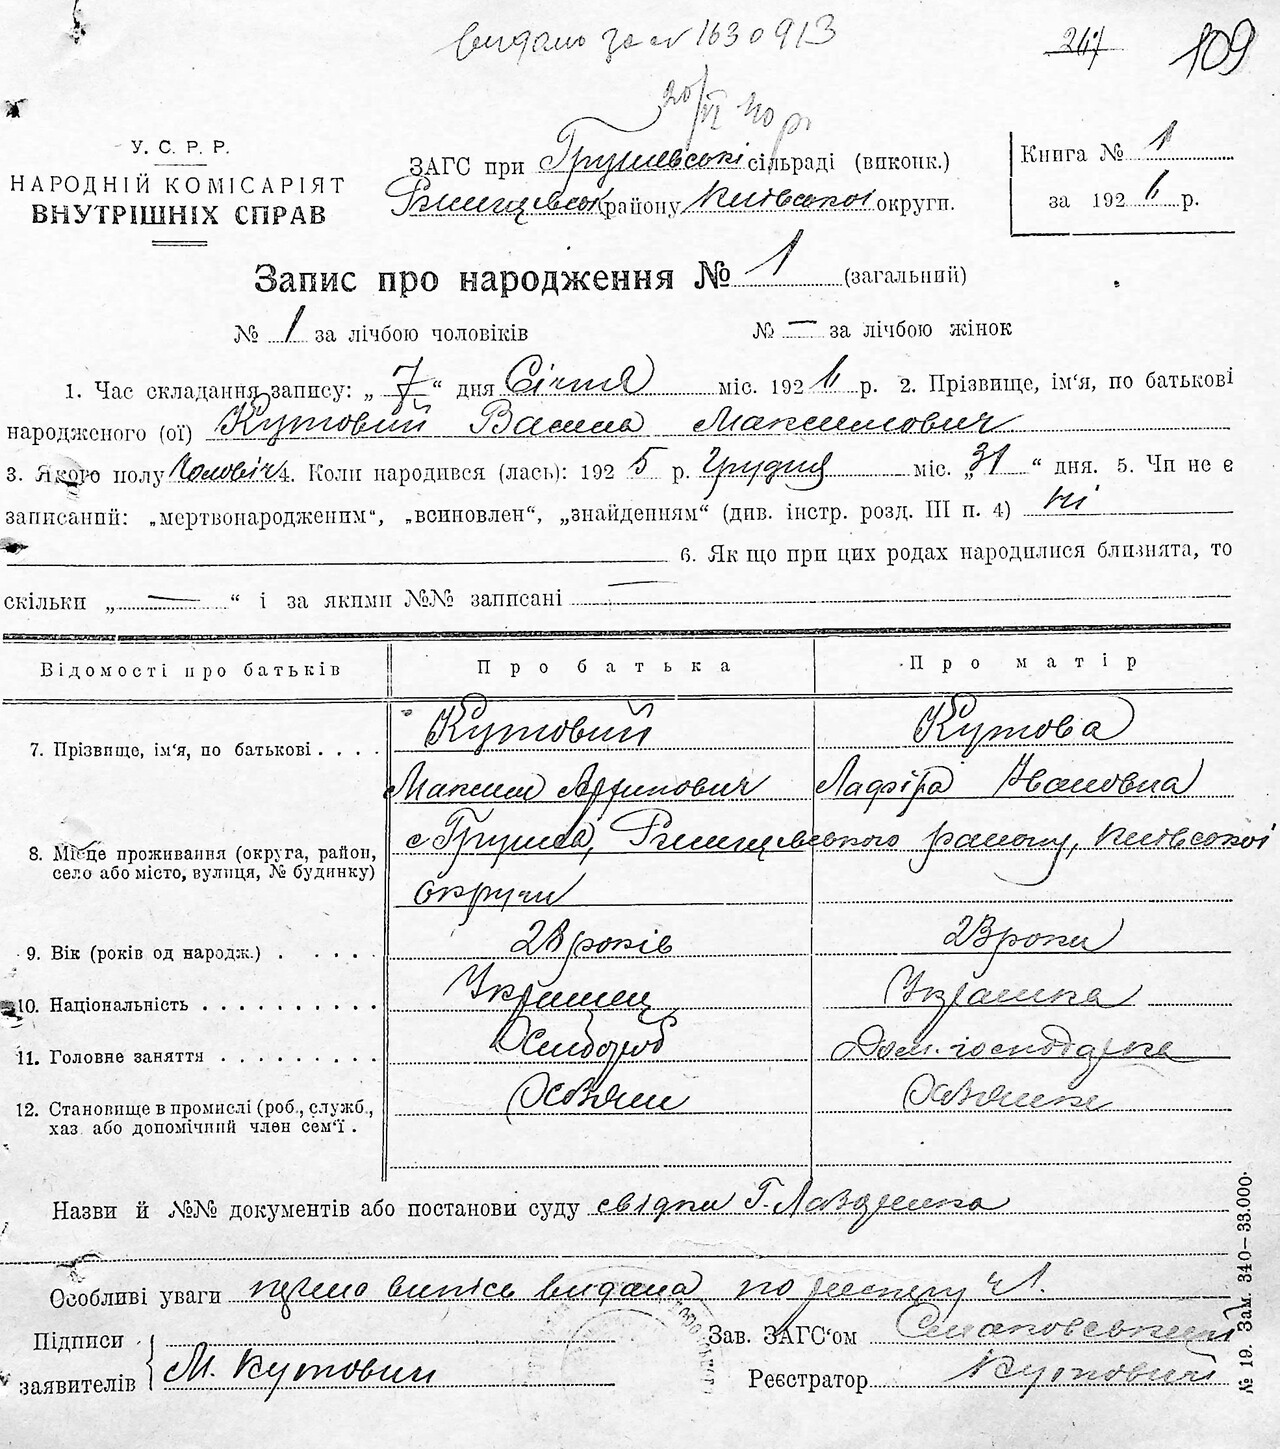 видано за № 1630913
247 109
20/VI 40 р.
У. С. Р. Р.
НАРОДНІЙ КОМІСАРІЯТ
ВНУТРІШНІХ СПРАВ
ЗАГС при Грушевські сільраді (виконк.)
Ржищевськ району Київської округи.
Книга № 1
за 1926 р.
Запис про народження № 1 (загальний)
№ 1 за лічбою чоловіків № — за лічбою жінок
1. Час складання запису: „7“ дня Січня міс. 1926 р. 2. Прізвище, ім‘я, по батькові
народженого (ої) Кутовий Василь Максимович
3. Якого полу Чоловіч 4. Коли народився (лась): 1925 р. Грудня міс. „31“ дня. 5. Чи не є
записаний: „мертвонародженим“, „всиновлен“, „знайденням“ (див. інстр. розд. III п. 4) ні
6. Як що при цих родах народилися близнята, то
скільки „—“ і за якими №№ записані —
Відомості про батьків Про батька Про матір
7. Прізвище, ім‘я, по батькові . . . . Кутовий Кутова
Максим Івановна
8. Місце проживання (округа, район, село або місто, вулиця, № будинку) с Грушев, Ржищевського району, Київської
округи
9. Вік (років од народж.) . . . . . 28 років 23 роки
10. Національність . . . . . . . . . . Українець Українка
11. Головне заняття . . . . . . . . . Хлібороб Дом. господарка
12. Становище в промислі (роб., служб., хаз. або допомічний член сем‘ї .
Назви й №№ документів або постанови суду свідки Г.
Особливі уваги видана по реєстру ч 1.
Підписи
заявителів М. Кутович
Зав. ЗАГС‘ом
Реєстратор Кутовий
№ 19. Зам. 340—33.000.